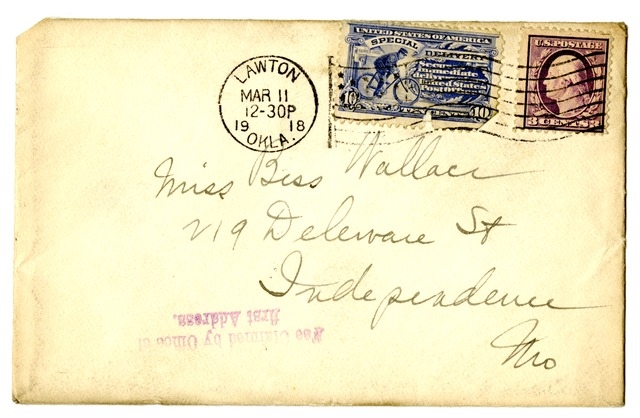 LAWTON
MAR 11
12-30P
1918
OKLA.
UNITED STATES OF AMERICA
SPECIAL DELIVERY
Secures
immediate
delivery
United States
10 TEN CENTS 10
U.S. POSTAGE
3 CENTS 3
Miss Bess Wallace
219 Deleware St
Independence
Mo
Fee Claimed by Office of
first Address.